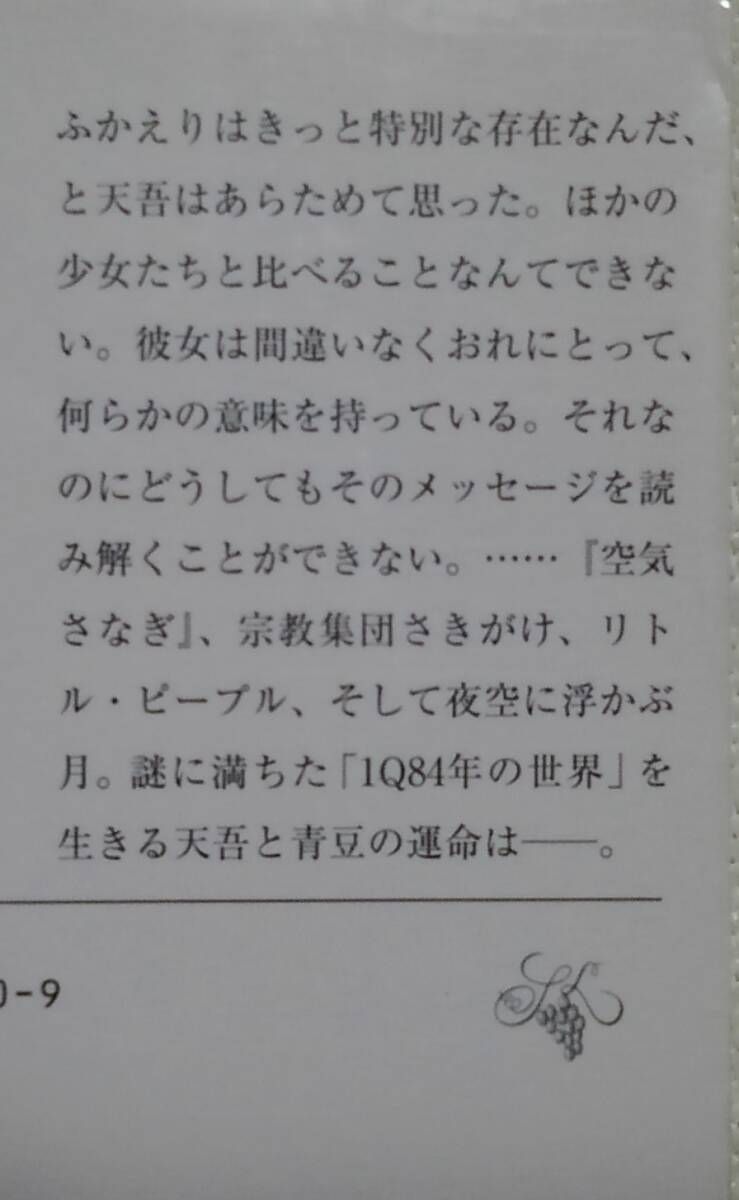 ふかえりはきっと特別な存在なんだ、
と天吾はあらためて思った。ほかの
少女たちと比べることなんてできな
い。彼女は間違いなくおれにとって、
何らかの意味を持っている。それな
のにどうしてもそのメッセージを読
み解くことができない。……『空気
さなぎ』、宗教集団さきがけ、リト
ル・ピープル、そして夜空に浮かぶ
月。謎に満ちた「1Q84年の世界」を
生きる天吾と青豆の運命は――。
0-9